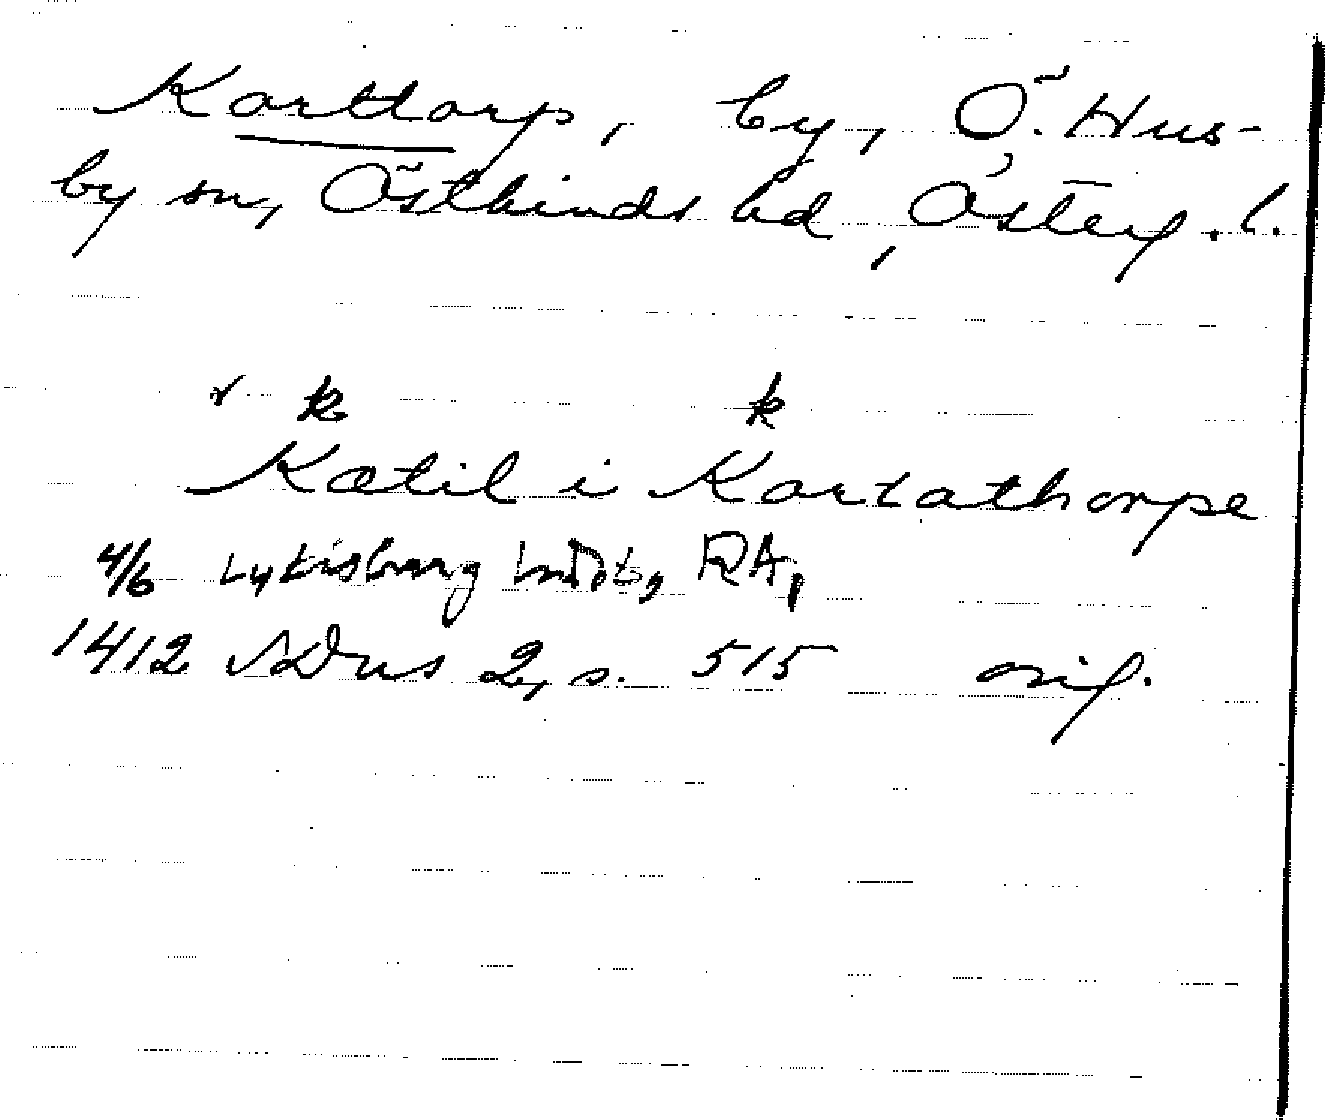 Karttorp, by, Ö. Hus-
by sn, Östkinds hd, Österg. l.
k k
Kætil i Kartathorpe
4/6 Lykisborg RA,
1412 SDns 2, s. 515 orig.